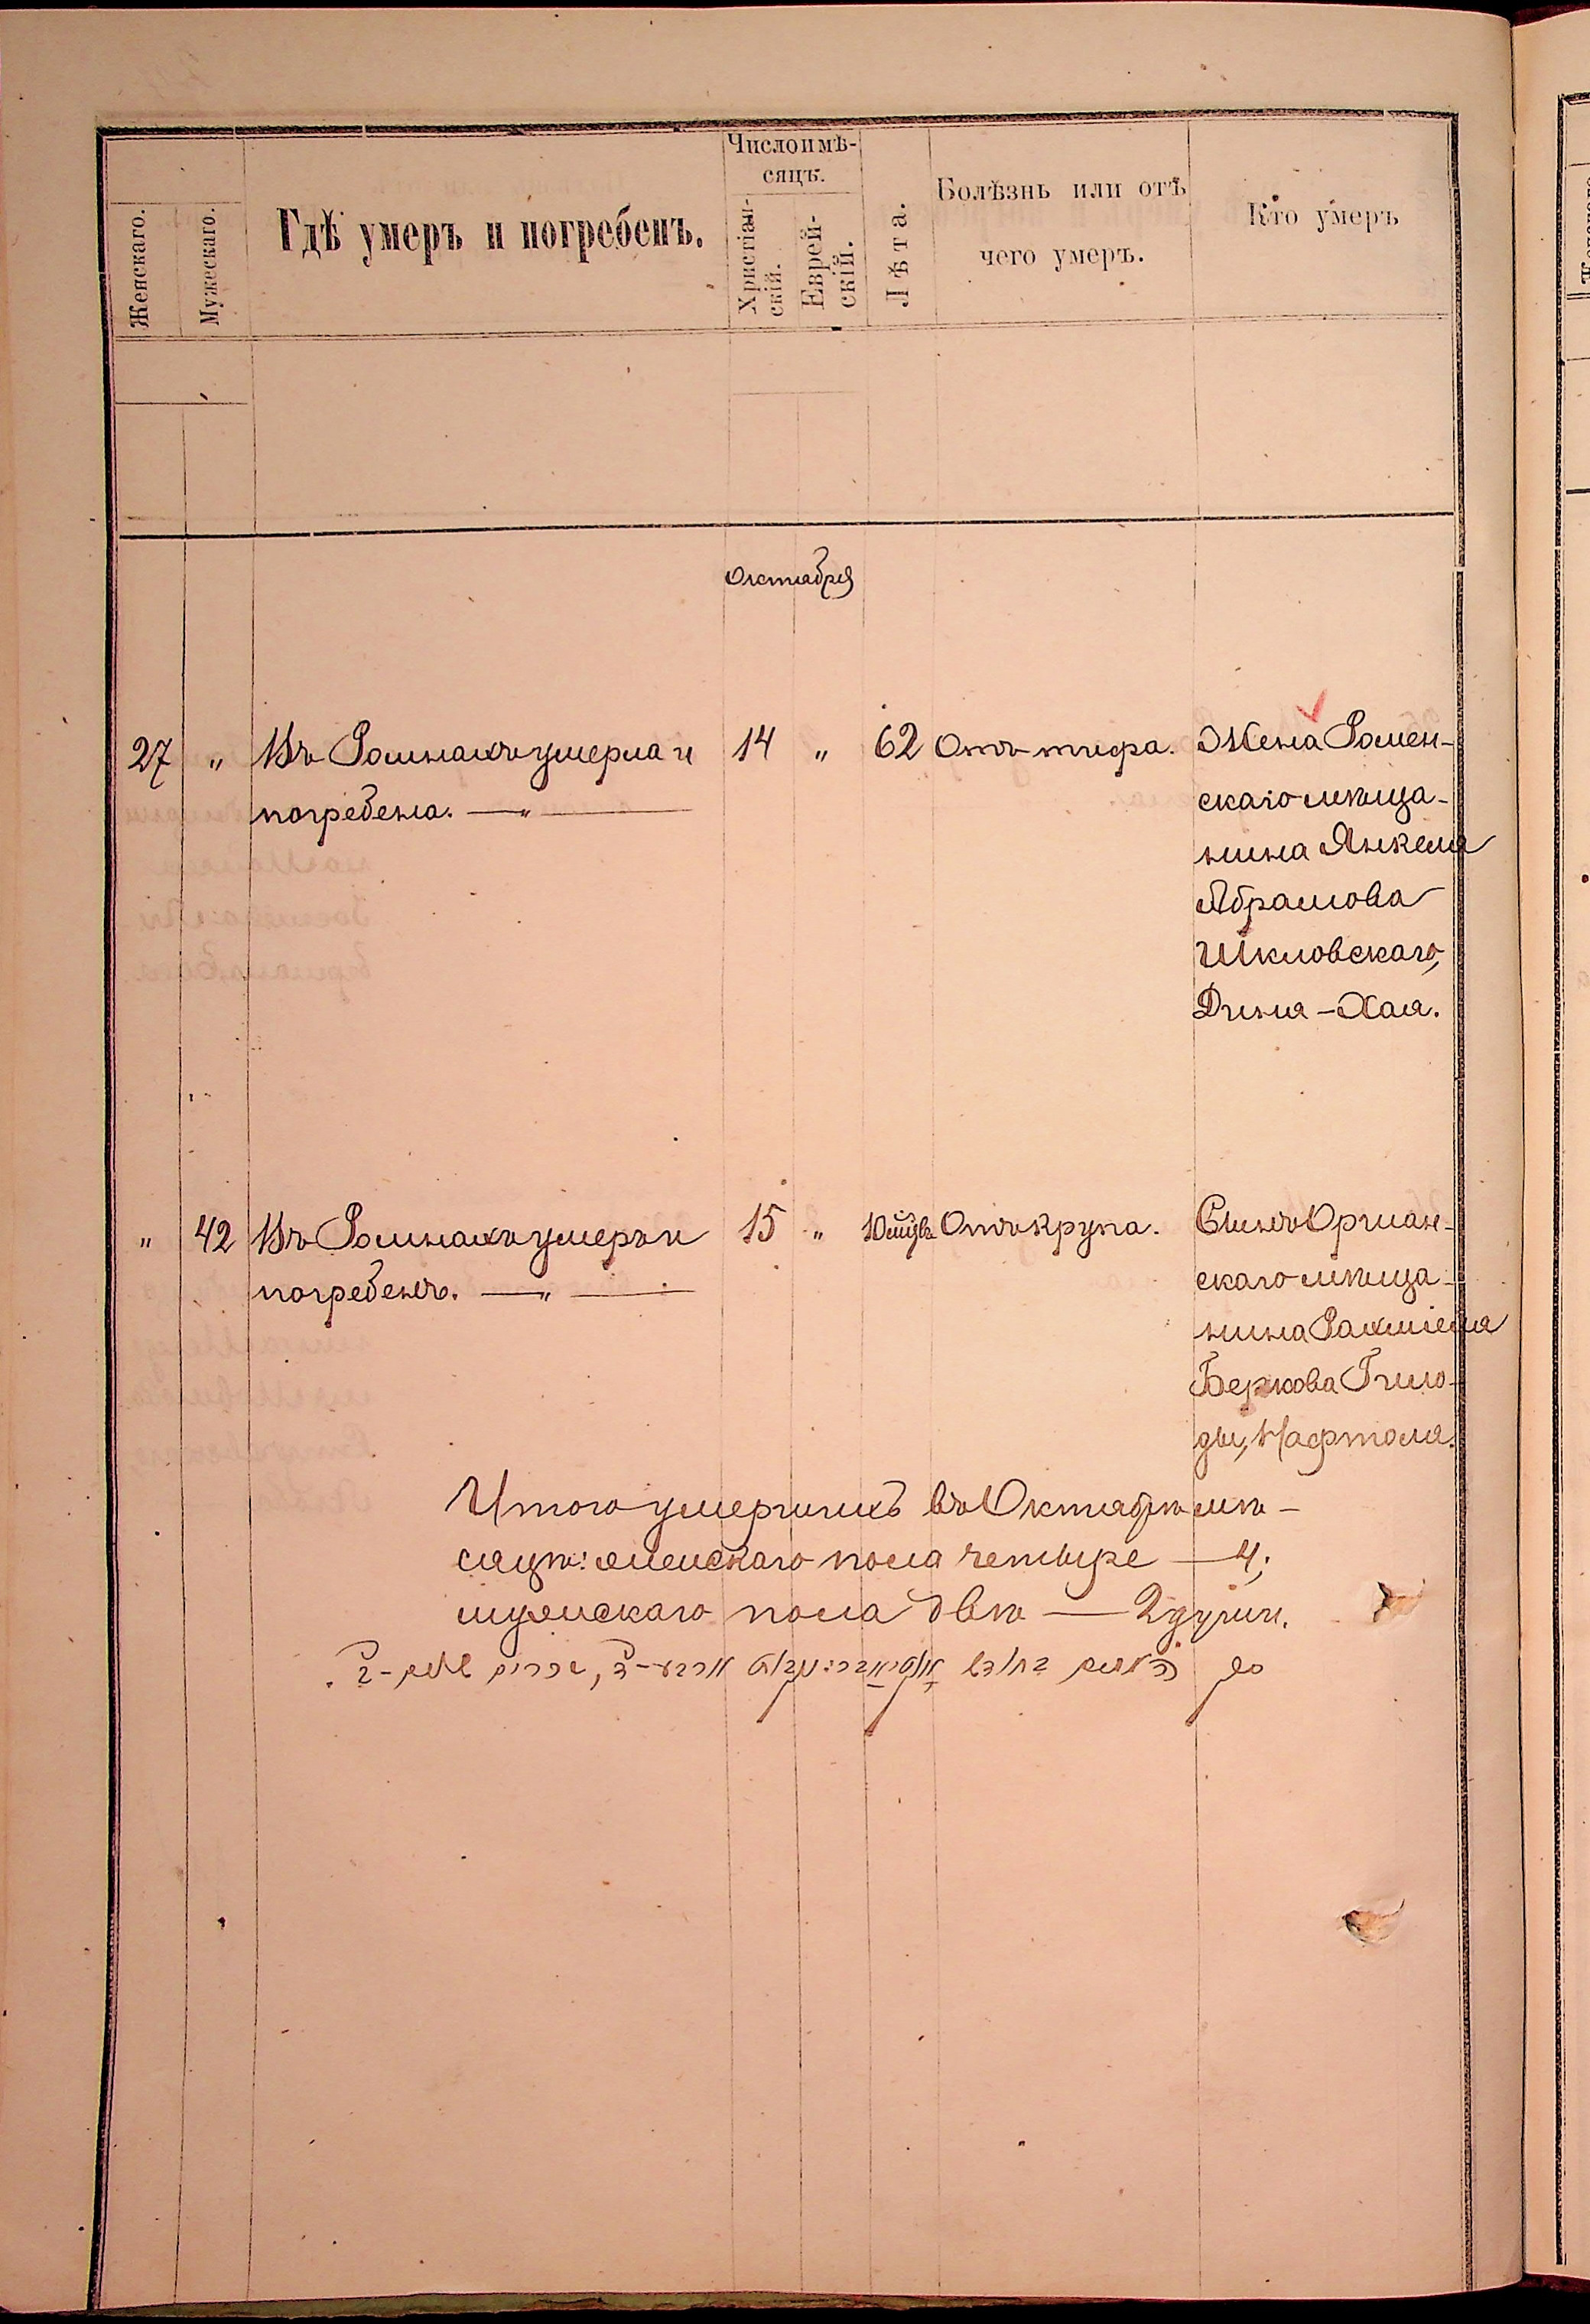 Женскаго.
Мужескаго.
Гдѣ умеръ и погребенъ.
Число и мѣ-
сяцъ.
Христіан-
скій.
Еврей-
скій.
Лѣта.
Болѣзнь или отъ
чего умеръ.
Кто умеръ
Октября
27 " Въ Ромнахъ умерла и 14 " 62 Отъ тифа. Жена Ромен-
погребена. — " — скаго мѣща-
нина Янкеля
Абрамова
Шкловскаго,
Двина-Хая.
" 42 Въ Ромнахъ умеръ и 15 " 10 мцвъ Отъ крупа. Сынъ Оршан-
погребенъ. — " — скаго мѣща-
нина Рахміеля
Беркова Гило-
ды, Нафтоля.
Итого умершихъ въ Октябрѣ мѣ-
сяцѣ: женскаго пола четыре — 4;
мужскаго пола двѣ — 2 души.